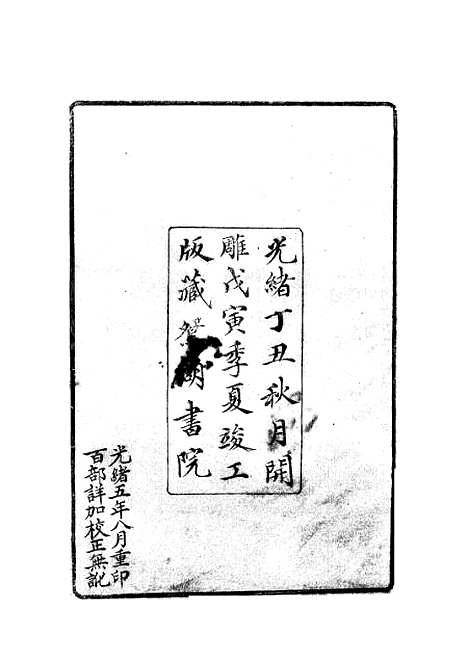 光緒丁丑秋月開
雕戊寅季夏竣工
版藏鴛湖書院
光緒五年八月重印
百部詳加校正無訛